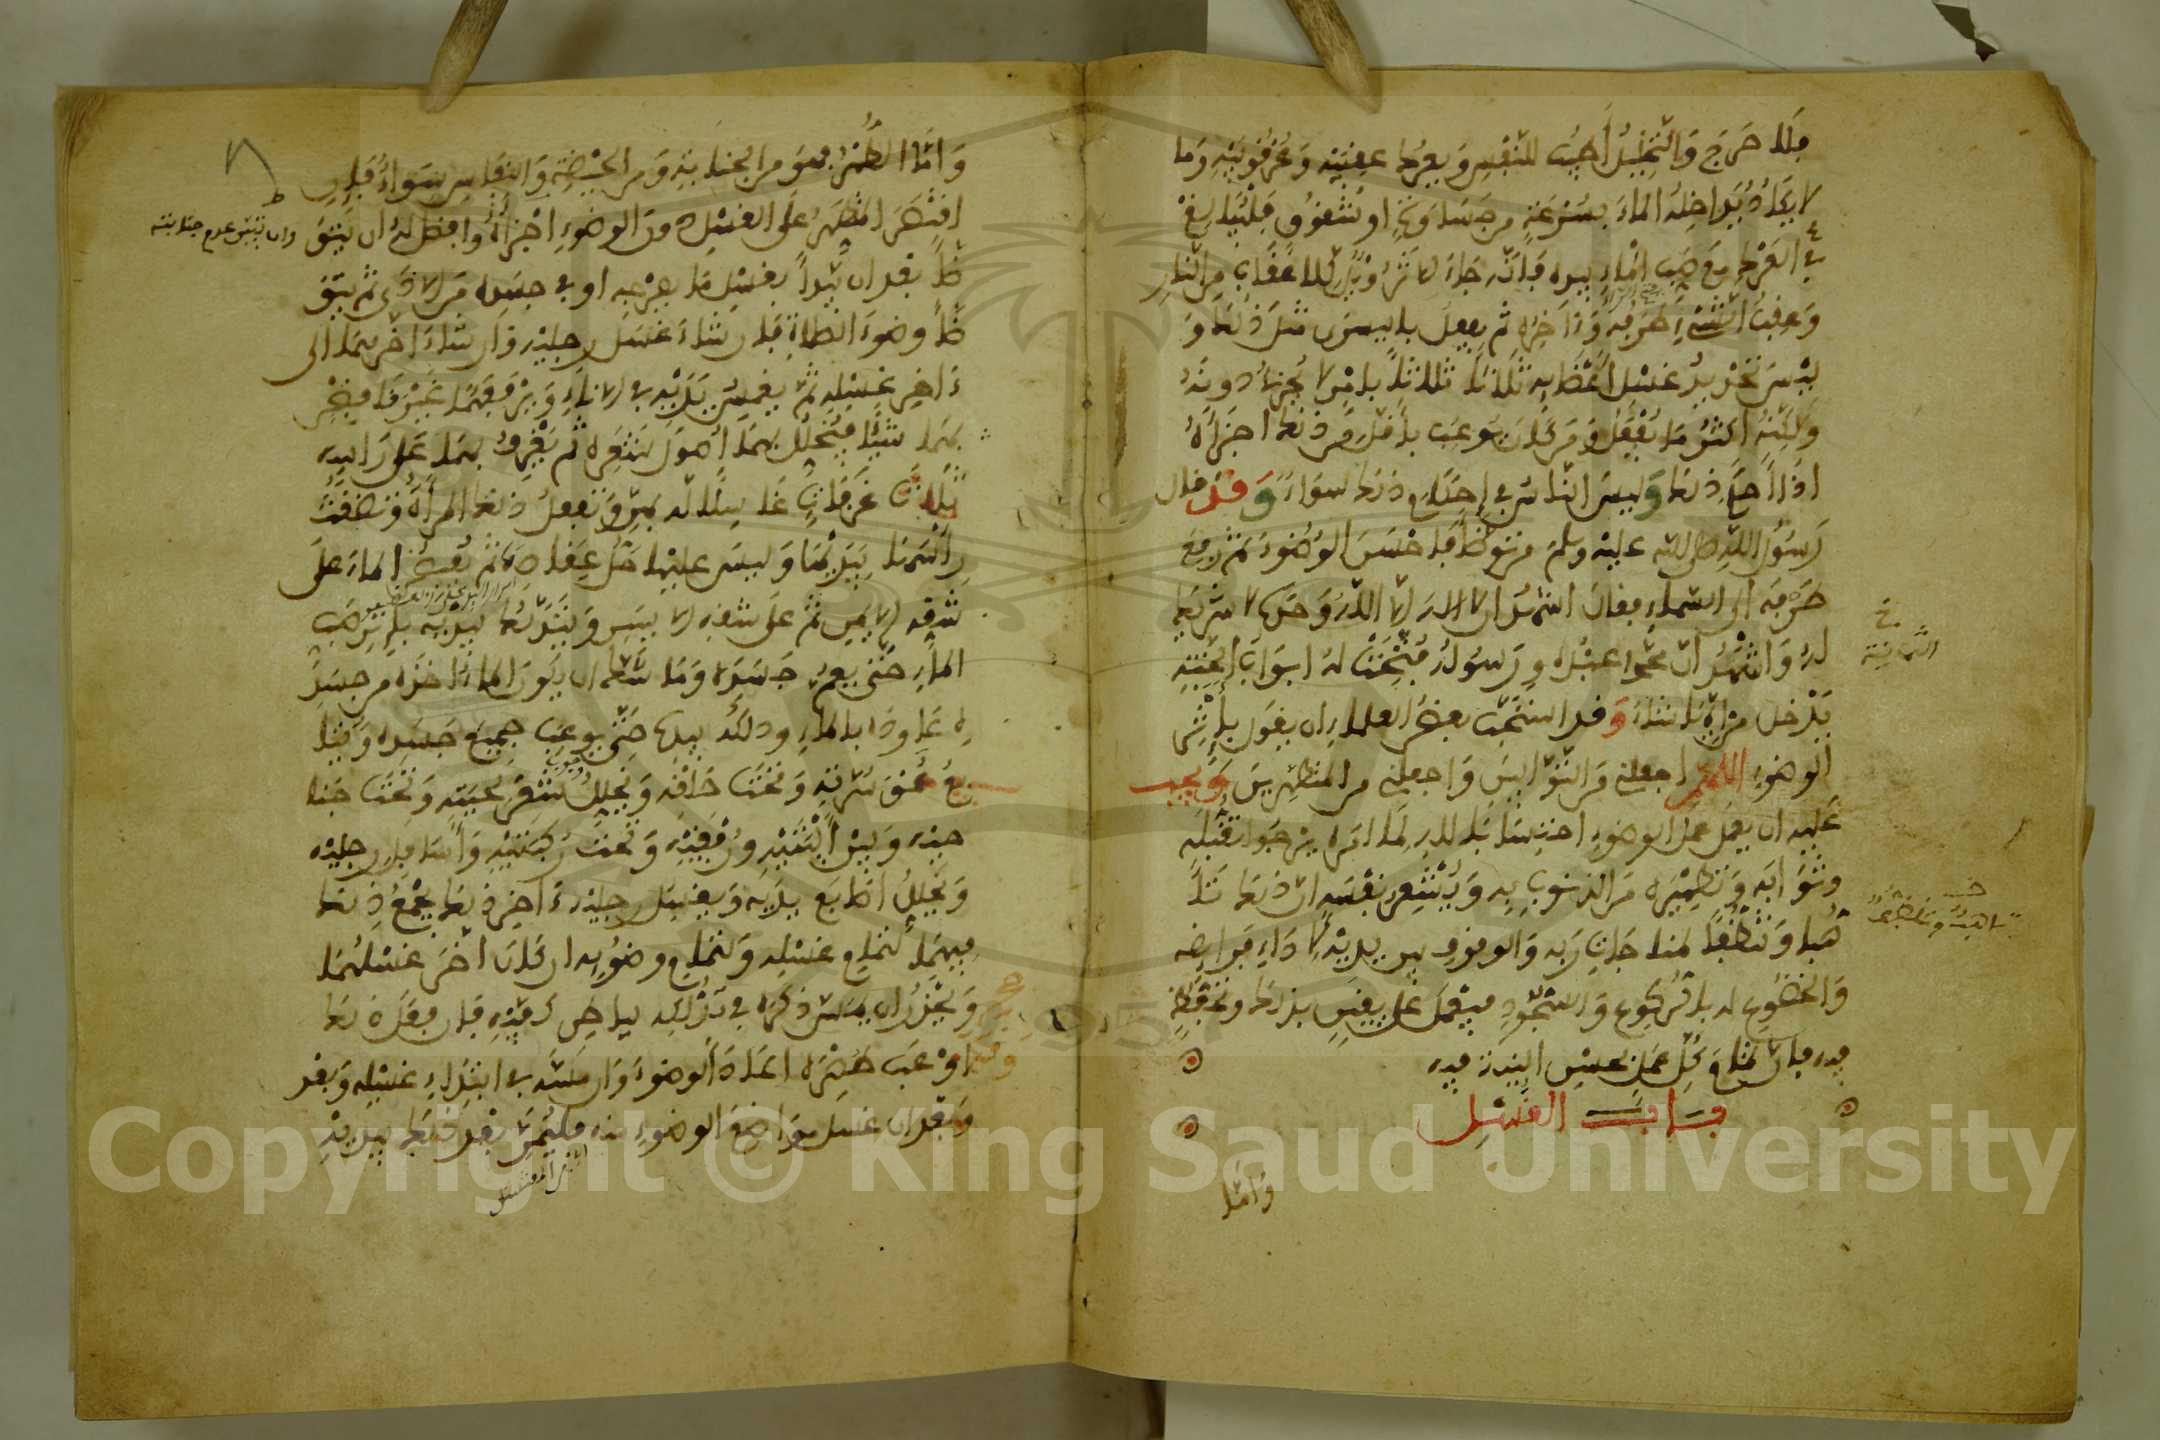 فلا حرج والتخليل أطيب للنفس ويعرك عقبيه وعرقوبيه وما
لا يكاد يداخله الماء بسرعة من جساوة او شقوق فليبالغ
في العرك مع صب الماء بيده فإنه جاء الاثر ويل للاعقاب من النار
وعقب الشيء طرفه وءاخره ثم يفعل باليسرى مثل ذلك و
ليس تحديد غسل أعضايه ثلاثا ثلاثا بامر لا يجزئ دونه
ولكنه اكثر ما يفعل ومن كان يوعب باقل من ذلك اجزأه
اذا احكم ذلك وليس الناس في إحكام ذلك سواء وقد قال
رسول الله صلى الله عليه وسلم من توضأ فاحسن الوضوء ثم رفع
طرفه الى السماء فقال اشهد ان لا اله الا الله وحده لا شريك
له واشهد ان محمدا عبده ورسوله فتحت له ابواب الجنة
الثمانية
يدخل من ايها شاء وقد استحب بعض العلماء ان يقول بإثر
الوضوء اللهم اجعلني من التوابين واجعلني من المتطهرين ويجب
عليه ان يعمل عمل الوضوء احتسابا لله لما امره يرجوا تقبله
وثوابه وتطهيره من الذنوب به ويشعر نفسه ان ذلك تا
هبا وتنظفا لمناجات ربه والوقوف بين يديه لاداء فرايضه
والخضوع له بالركوع والسجود فيعمل على يقين بذلك وتحفظ
فيه فإن تمام كل عمل بحسن النية فيه
باب الغسل
وأما
واما الطهر فهو من الجنابة ومن الحيضة والنفاس سواء فإن
اقتصر المتطهر على الغسل دون الوضوء اجزأه وافضل له ان يتوض
وان تبين عدم جنابته
ظأ بعد ان يبدأ بغسل ما بفرجه او في جسده من الاذى ثم يتوض
ظأ وضوء الصلاة فإن شاء غسل رجليه وان شاء اخرهما الى
ءاخر غسله ثم يغمس يديه في الاناء ويرفعهما غير قابض
بهما شيئا فيخلل بهما أصول شعره ثم يغرف بهما على راسه
ثلاث غرفات غاسلا له بهن وتفعل ذلك المرأة وتضغث
رأسها بيديها وليس عليها حل عقاصها ثم يفيض الماء على
شقه الايمن ثم على شقه الايسر ويتدلك بيديه بإثر صب
الماء حتى يعم جسده وما شك ان يكون الماء اخذه من جسد
ه عاوده بالماء ودلكه بيده حتى يوعب جميع جسده ويتا
بع عمق سرته وتحت حلقه ويخلل شعر لحيته وتحت جنا
حيه وبين أليتيه ورفغيه وتحت ركبتيه وأسافل رجليه
ويخلل اصابع يديه ويغسل رجليه ءاخر ذلك يجمع ذلك
فيهما لتمام غسله ولتمام وضوئه ان كان اخر غسلهما
ويحذر ان يمس ذكره في تدلكه بباطن كفيه فإن فعل ذلك
وقد اوعب طهره اعاد الوضوء وان مسه في ابتداء غسله وبعد
وبعد ان غسل مواضع الوضوء منه فليمر بعد ذلك بيديه